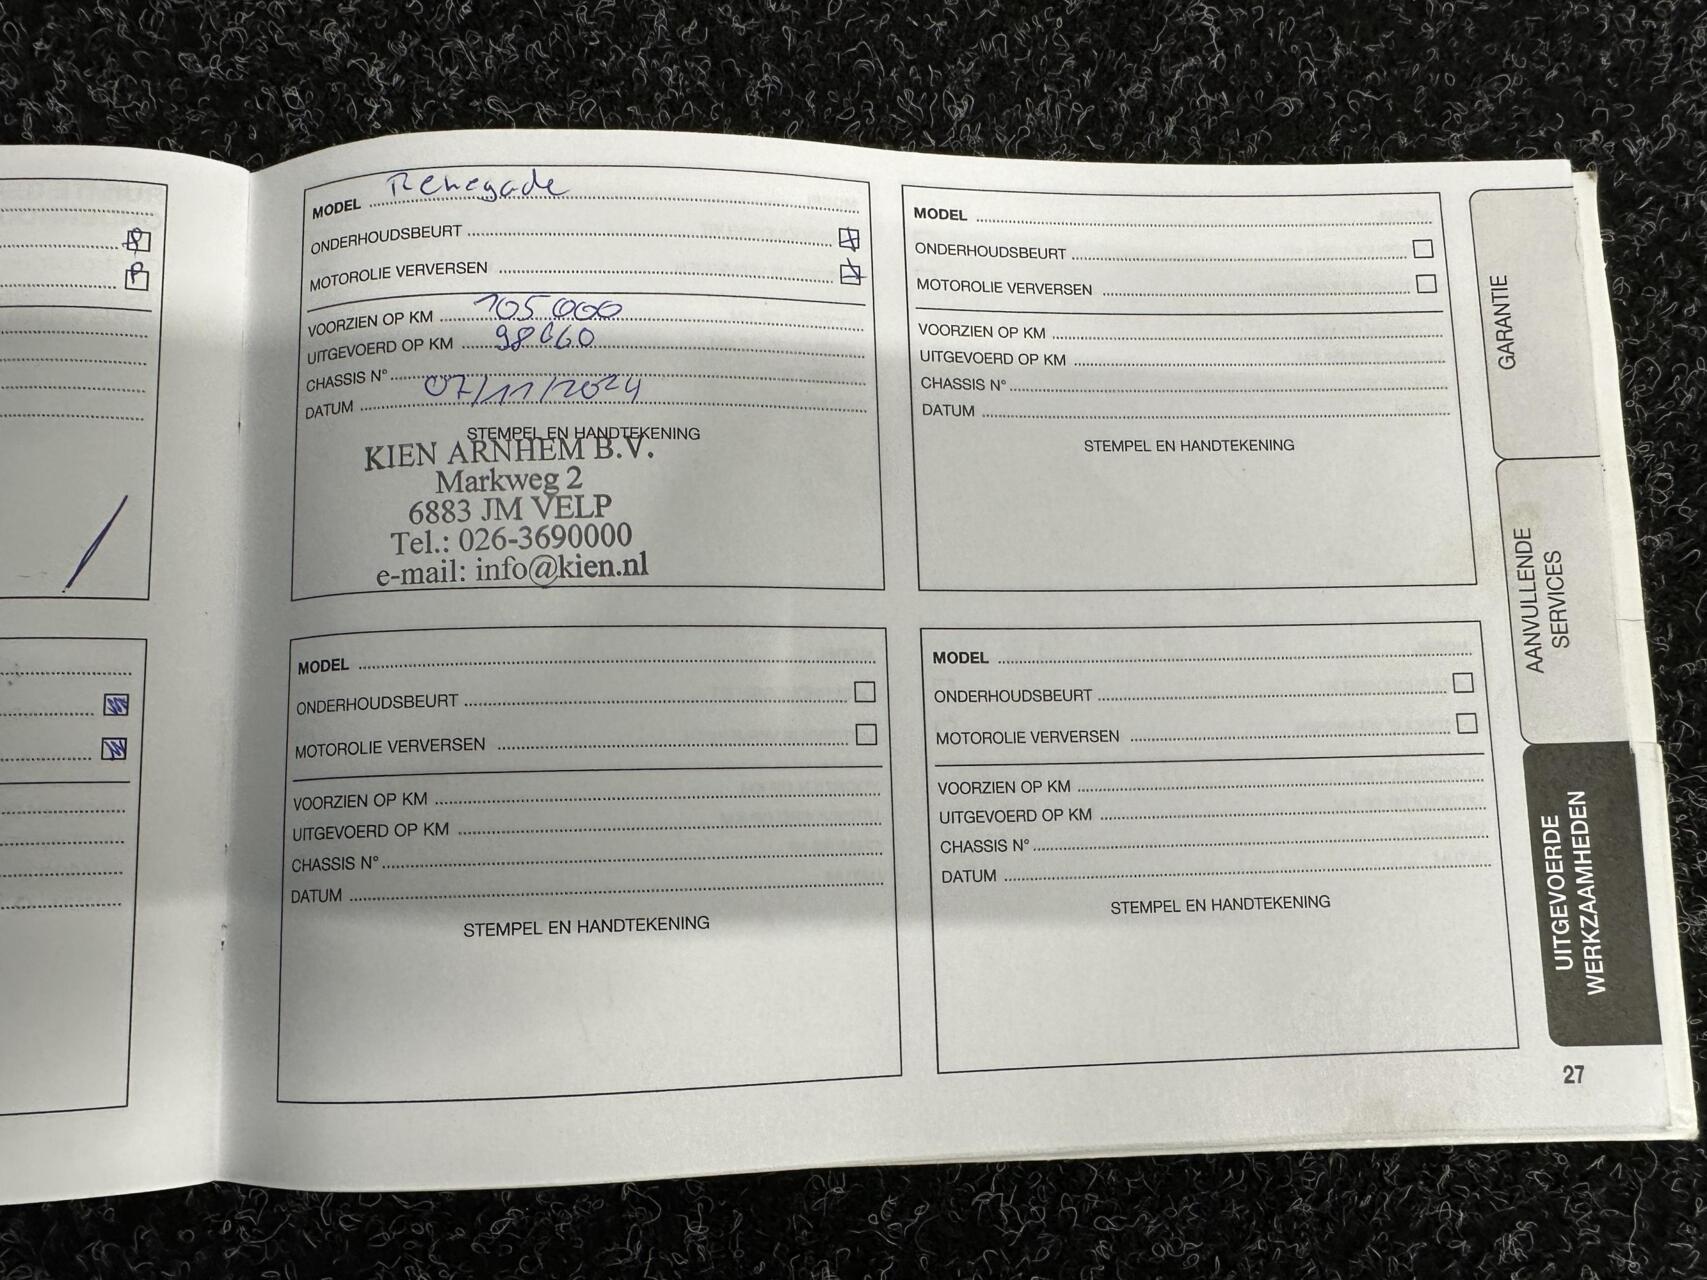 MODEL Renegade
ONDERHOUDSBEURT
MOTOROLIE VERVERSEN
VOORZIEN OP KM 105000
UITGEVOERD OP KM
CHASSIS N°
DATUM 07/11/2024
STEMPEL EN HANDTEKENING
KIEN ARNHEM B.V.
Markweg 2
6883 JM VELP
Tel.: 026-3690000
e-mail: info@kien.nl
MODEL
ONDERHOUDSBEURT
MOTOROLIE VERVERSEN
VOORZIEN OP KM
UITGEVOERD OP KM
CHASSIS N°
DATUM
STEMPEL EN HANDTEKENING
MODEL
ONDERHOUDSBEURT
MOTOROLIE VERVERSEN
VOORZIEN OP KM
UITGEVOERD OP KM
CHASSIS N°
DATUM
STEMPEL EN HANDTEKENING
MODEL
ONDERHOUDSBEURT
MOTOROLIE VERVERSEN
VOORZIEN OP KM
UITGEVOERD OP KM
CHASSIS N°
DATUM
STEMPEL EN HANDTEKENING
GARANTIE
AANVULLENDE
SERVICES
UITGEVOERDE
WERKZAAMHEDEN
27